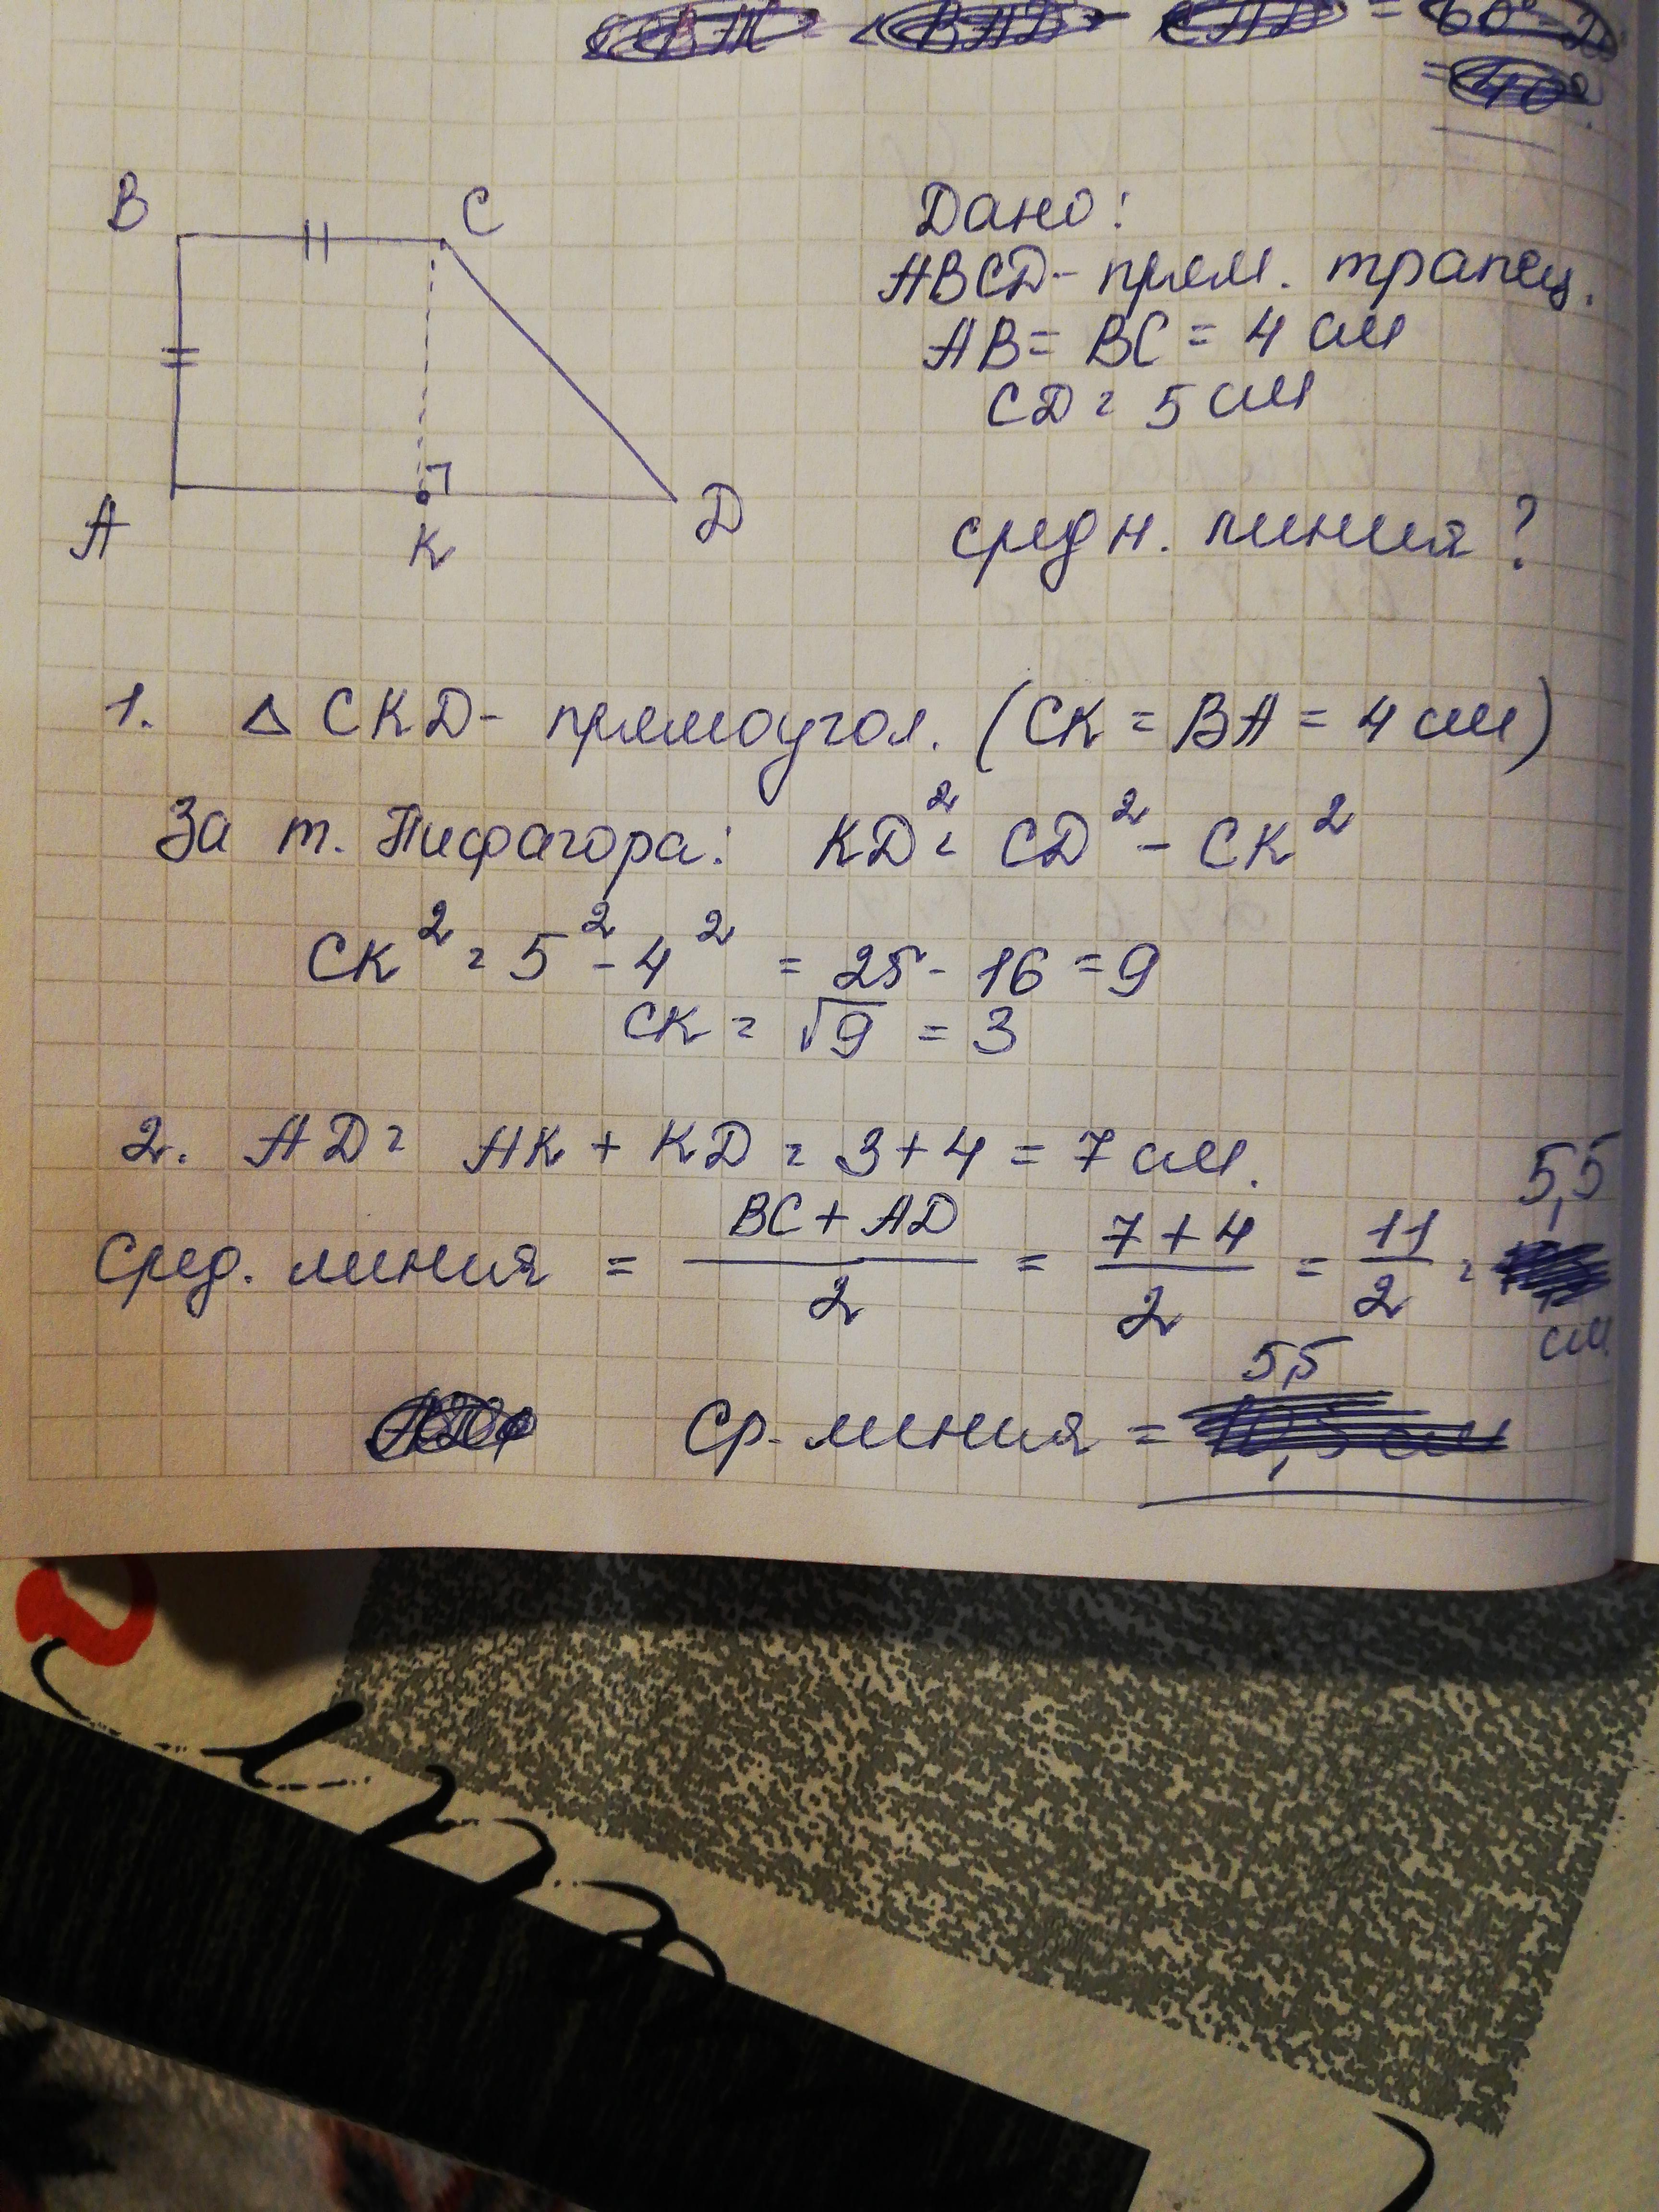 B C
A K D
Дано:
ABCD- прям. трапец.
AB = BC = 4 см
CD = 5 см
средн. линия ?
1. △ CKD- прямоугол. (CK = BA = 4 см)
За т. Пифагора: KD² = CD² - CK²
CK² = 5² - 4² = 25 - 16 = 9
CK = √9 = 3
2. AD = AK + KD = 3 + 4 = 7 см.
Сред. линия = (BC + AD)/2 = (7 + 4)/2 = 11/2 = 5,5 см.
Ср. линия = 5,5